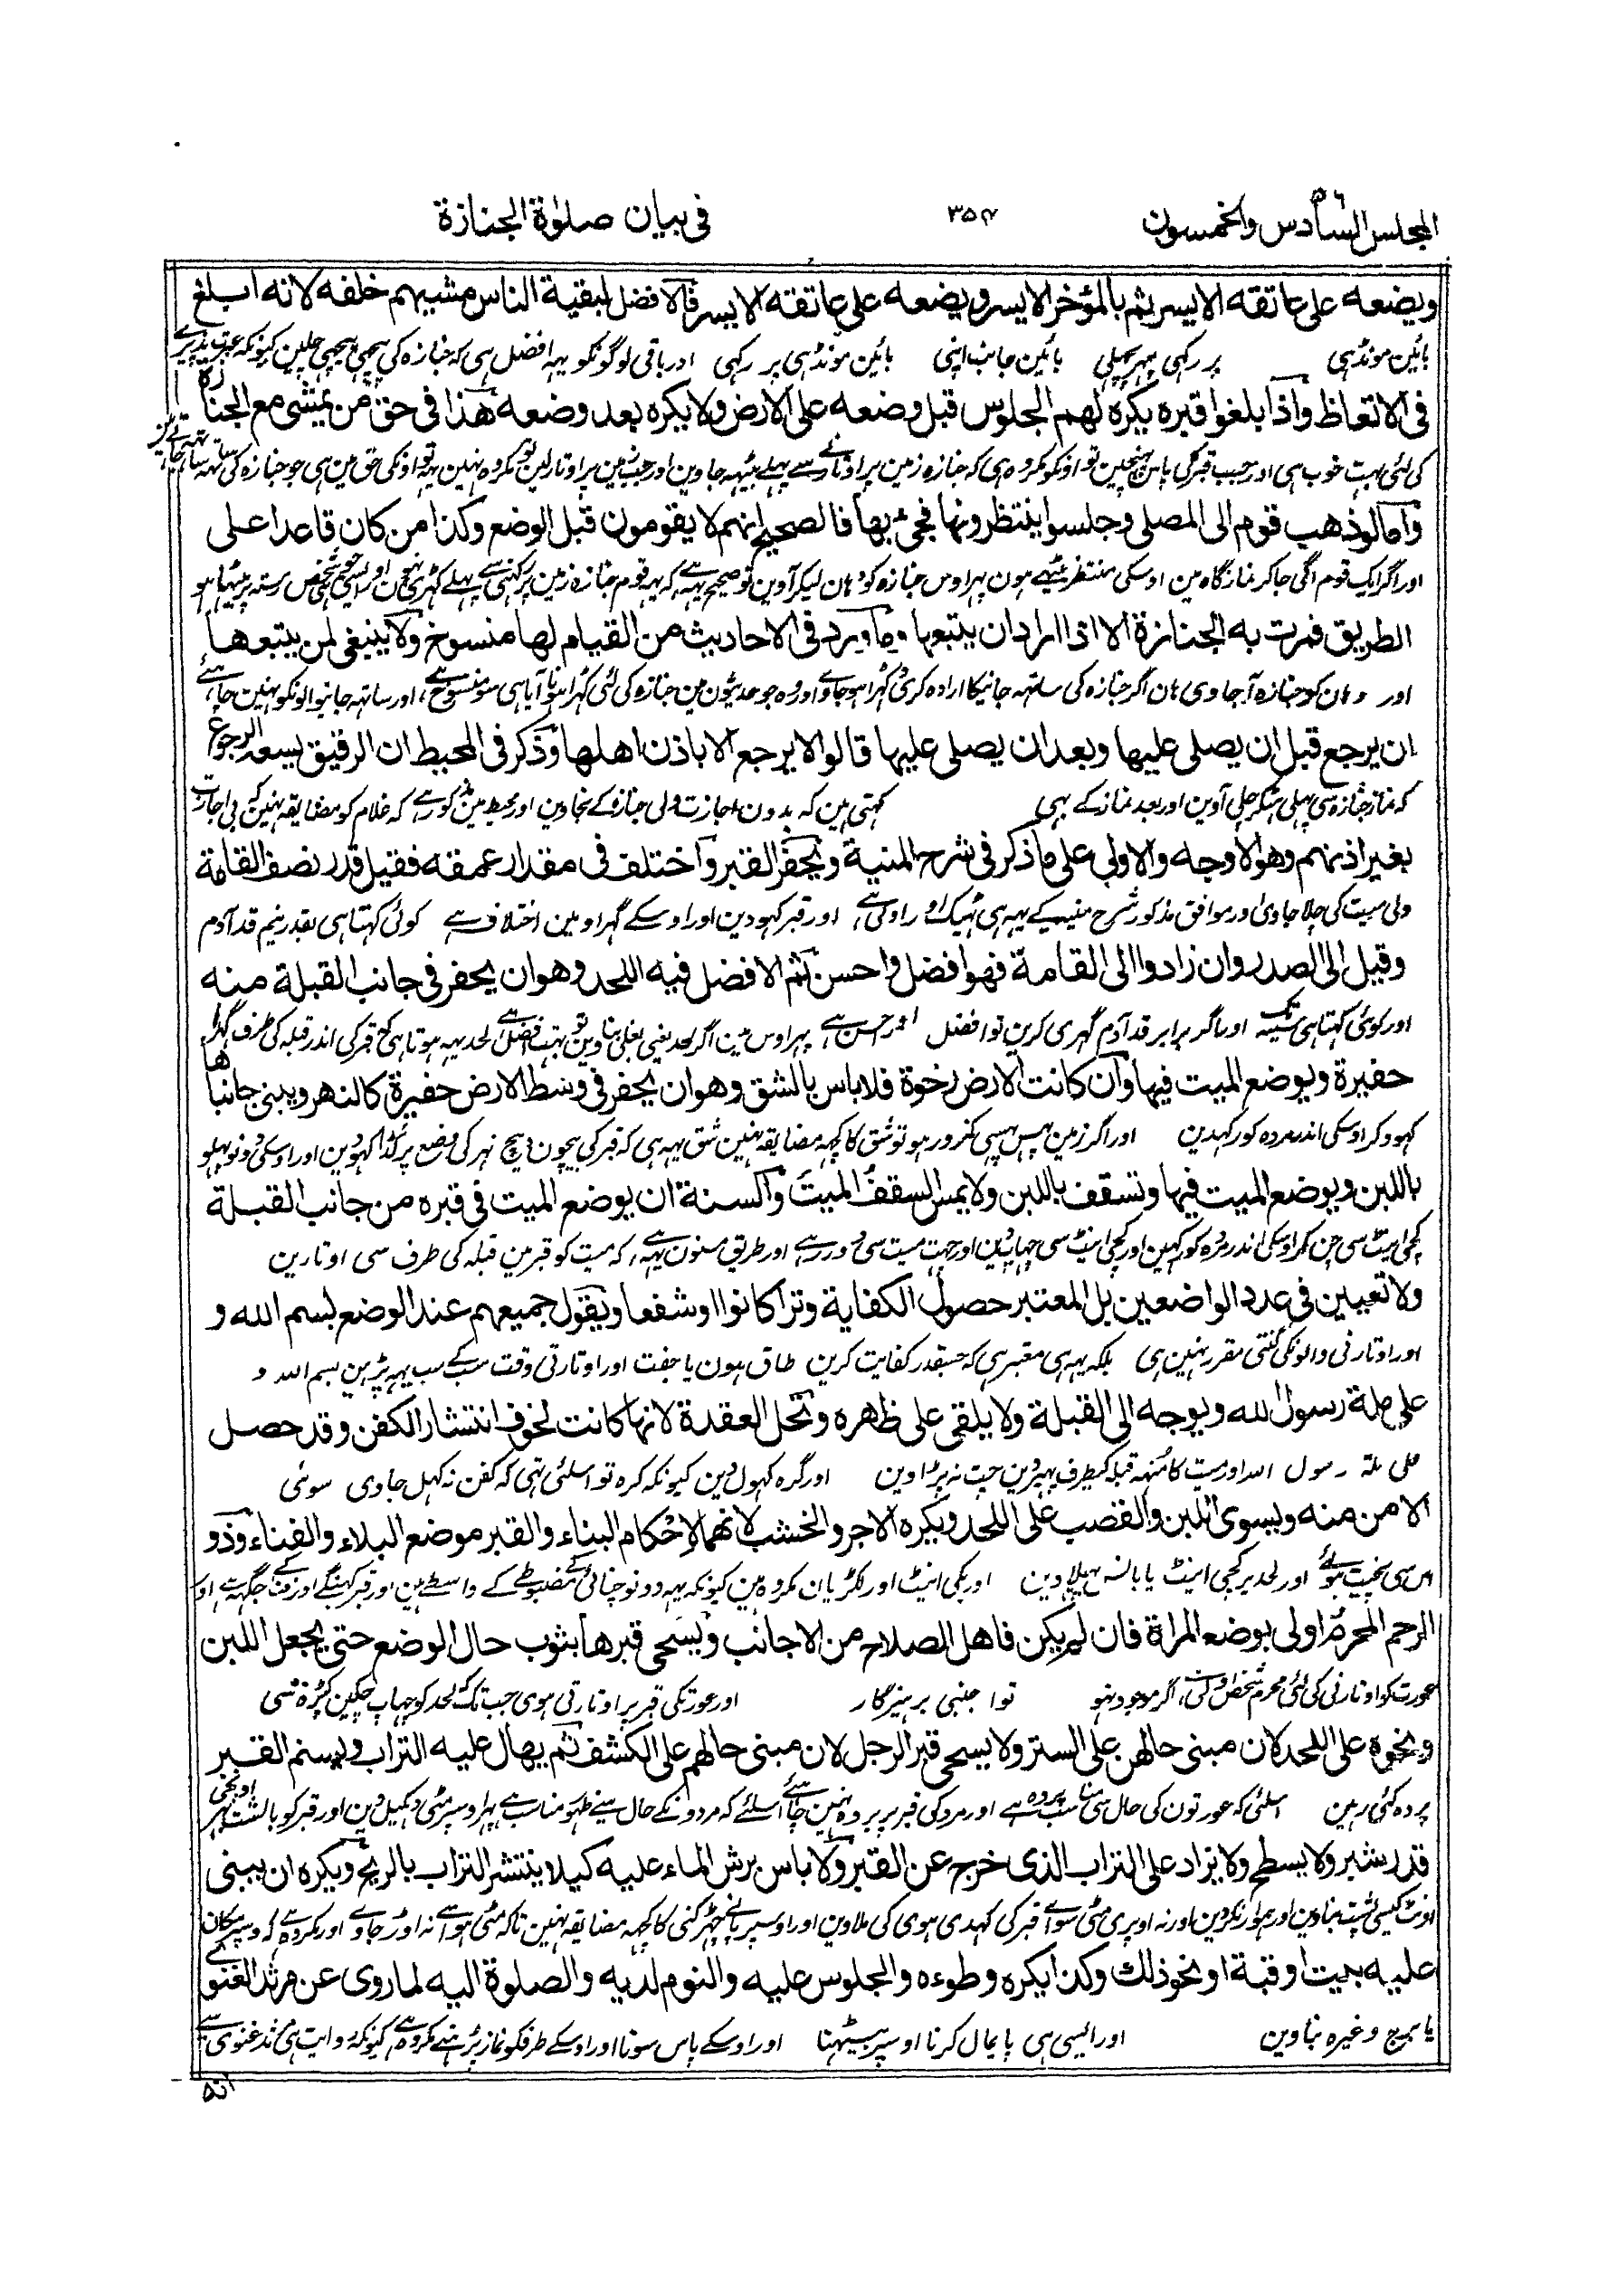 المجلس السادس والخمسون ۵۶
۳۵۴
فی بیان صلوٰة الجنازة
ویضعه علی عاتقه الایسر ثم بالمؤخر الایسر ویضعه علی عاتقه الایسر فالافضل لبقیة الناس مشیهم خلفه لانه ابلغ
بائین مونڈہی پر رکہی پہر پچہلی بائین جانب اپنی بائین مونڈہی پر رکہی اور باقی لوگونکو یہہ افضل ہی کہ جنازہ کی پیچہی پیچہی چلین کیونکہ عبرت پذیری
فی الاتعاظ واذا بلغوا قبره یکره لهم الجلوس قبل وضعه علی الارض ولا یکره بعد وضعه هذا فی حق من یمشی مع الجنازة
کی لئی بہت خوب ہی اور جب قبر کی پاس پہنچین تو اونکو مکروہ ہی کہ جنازہ زمین پر اوتارنے سے پہلے بیٹہہ جاوین اور جب زمین پر اوتارلین تو مکروہ نہین یہہ تو اونکی حق مین ہی جو جنازہ کی ساتہہ ساتہہ
واما لو ذهب قوم الی المصلی وجلسوا ینتظرونها فجیء بها فالصحیح انهم لا یقومون قبل الوضع وکذا من کان قاعدا علی
اور اگر ایک قوم اگی جاکر نمازگاہ مین اوسکی منتظر بیٹہے ہون پہر اوس جنازہ کو وہان لیکر آوین تو صحیح یہہ ہے کہ یہہ قوم جنازہ زمین پر رکہنی سے پہلے کہڑی نہون اور ایسی ہی جو شخص رستہ پر بیٹہا ہو
الطریق فمرت به الجنازة الا اذا اراد ان یتبعها وما ورد فی الاحادیث من القیام لها منسوخ ولا ینبغی لمن یتبعها
اور وہان کو جنازہ آجاوی ہان اگر جنازہ کی ساتہہ جانیکا ارادہ کری تو کہڑا ہو جاوے اور وہ جو حدیثون مین جنازہ کی لئی کہڑا ہونا آیا ہی سو منسوخ ہے، اور ساتہہ جانیوالونکو نہین چاہئے
ان یرجع قبل ان یصلی علیها وبعد ان یصلی علیها قالوا لا یرجع الا باذن اهلها وذکر فی المحیط ان الرفیق یسعه الرجوع
کہ نماز جنازہ سی پہلی ہٹکر چلی آوین اور بعد نماز کے بہی کہتی ہین کہ بدون اجازت ولی جنازہ کے نجاوین اور محیط مین مذکور ہے کہ غلام کو مضایقہ نہین کہ بی اجازت
بغیر اذنهم وهو الاوجه والاولی علی ما ذکر فی شرح المنیة ویحفر القبر واختلف فی مقدار عمقه فقیل قدر نصف القامة
ولی میت کی چلا جاوی اور موافق مذکور شرح منیہ کے یہہ ہی ٹہیک اور اولی ہے، اور قبر کہودین اور اوسکے گہراو مین اختلاف ہے کوئی کہتا ہی بقدر نیم قد آدم
وقیل الی الصدر وان زادوا الی القامة فهو افضل واحسن ثم الافضل فیه اللحد وهو ان یحفر فی جانب القبلة منه
اور کوئی کہتا ہی سینہ تک اور اگر برابر قد آدم گہری کرین تو افضل اور احسن ہے پہر اوس مین اگر لحد یعنی بغلی بناوین تو بہت افضل ہے لحد یہہ ہوتا ہی کہ قبر کی اندر قبلہ کی طرف گہڑا
حفیرة ویوضع المیت فیها وان کانت الارض رخوة فلا باس بالشق وهو ان یحفر فی وسط الارض حفیرة کالنهر ویبنی جانباها
کہود کر اوسکی اندر مردہ کو رکہدین اور اگر زمین پہس پہسی کمزور ہو تو شق کا کچہہ مضایقہ نہین شق یہہ ہی کہ قبر کی بیچون بیچ نہر کی وضع پر گڑا کہودین اور اوسکی دونو پہلو
باللبن ویوضع المیت فیها وتسقف باللبن ولا یمس السقف المیت والسنة ان یوضع المیت فی قبره من جانب القبلة
کچی اینٹ سی چن کر اوسکی اندر مردہ کو رکہین اور کچی اینٹ سی چہاپدین اور چہت میت سی دور رہے اور طریق مسنون یہہ ہے، کہ میت کو قبر مین قبلہ کی طرف سی اوتارین
ولا تعیین فی عدد الواضعین بل المعتبر حصول الکفایة وترا کانوا او شفعا ویقول جمیعهم عند الوضع بسم الله و
اور اوتارنی والونکی گنتی مقرر نہین ہی بلکہ یہہ ہی معتبر ہی کہ جسقدر کفایت کرین طاق ہون یا جفت اور اوتارتی وقت سبکے سب یہہ پڑہین بسم اللہ و
علی ملة رسول الله ویوجه الی القبلة ولا یلقی علی ظهره وتحل العقدة لانها کانت لخوف انتشار الکفن وقد حصل
علی ملۃ رسول اللہ اور میت کا مُنہہ قبلہ کیطرف پہیر دین چت نہ پڑاوین اور گرہ کہول دین کیونکہ گرہ تو اسلئی تہی کہ کفن نہ کہل جاوی سوئی
الامن منه ویسوی اللبن والقصب علی اللحد ویکره الاجر والخشب لانهما لاحکام البناء والقبر موضع البلاء والفناء وذو
اس سی نچیت ہوئے اور لحد پر کچی اینٹ یا بانس پہیلادین اور پکی اینٹ اور لکڑیان مکروہ ہین کیونکہ یہہ دونو چنائی کے مضبوطے کے واسطے ہین اور قبر کہنگے اور فنا کے جگہہ ہے اور
الرحم المحرم اولی بوضع المراة فان لم یکن فاهل الصلاح من الاجانب ویسجی قبرها بثوب حال الوضع حتی یجعل اللبن
عورت کو اوتارنی کی لئی محرم شخص اولی ہی، اگر موجود نہو تو اجنبی پرہیزگار اور عورتکی قبر پر اوتارتی ہوی جب تک لحد کو چہاپ چکین کپڑہ سی
ونحوه علی اللحد لان مبنی حالهن علی الستر ولا یسجی قبر الرجل لان مبنی حالهم علی الکشف ثم یهال علیه التراب ویسنم القبر
پردہ کئی رہین اسلئی کہ عورتون کی حال سی مناسب پردہ ہے اور مرد کی قبر پر پردہ نہین چاہئے اسلئے کہ مردونکے حال سے ظہور مناسب ہے پہر اوسپر مٹی دہکیل دین اور قبر کو بالشت بہر اونچی
قدر شبر ولا یسطح ولا یزاد علی التراب الذی خرج عن القبر ولا باس برش الماء علیه کیلا ینتشر التراب بالریح ویکره ان یبنی
اونٹ کیسی پشت بناوین اور ہموار نکردین اور نہ اوپری مٹی سوائے قبر کی کہدی ہوی کی ملاوین اور اوسپر پانے چہڑکنی کا کچہہ مضایقہ نہین تاکہ مٹی ہوا سے نہ اوڑ جاوے اور مکروہ ہے کہ اوسپر مکان
علیه بیت او قبة او نحو ذلک وکذا یکره وطوءه والجلوس علیه والنوم لدیه والصلوة الیه لما روی عن مرثد الغنوی
یا برج وغیرہ بناوین اور ایسی ہی پایمال کرنا اوسپر بیٹہنا اور اوسکے پاس سونا اور اوسکے طرفکو نماز پڑہنے مکروہ ہے کیونکہ روایت ہی مرثد غنوی سے
انه